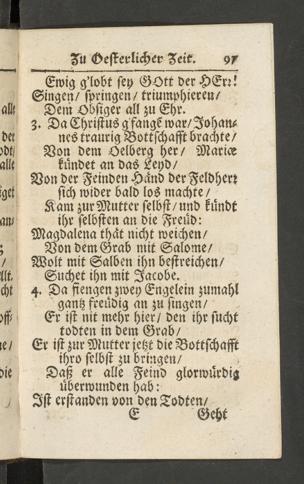 Zu Oesterlicher Zeit. 97
Ewig g'lobt sey GOtt der HErr!
Singen/ springen/ triumphieren/
Dem Obsiger all zu Ehr.
3. Da Christus g'fangẽ war/ Johan-
nes traurig Bottschafft brachte/
Von dem Oelberg her/ Mariæ
kündet an das Leyd/
Von der Feinden Händ der Feldherr
sich wider bald los machte/
Kam zur Mutter selbst/ und kündt
ihr selbsten an die Freüd:
Magdalena thät nicht weichen/
Von dem Grab mit Salome/
Wolt mit Salben ihn bestreichen/
Suchet ihn mit Jacobe.
4. Da fiengen zwey Engelein zumahl
gantz freüdig an zu singen/
Er ist nit mehr hier/ den ihr sucht
todten in dem Grab/
Er ist zur Mutter jetzt die Bottschafft
ihro selbst zu bringen/
Daß er alle Feind glorwürdig
überwunden hab:
Ist erstanden von den Todten/
E Geht